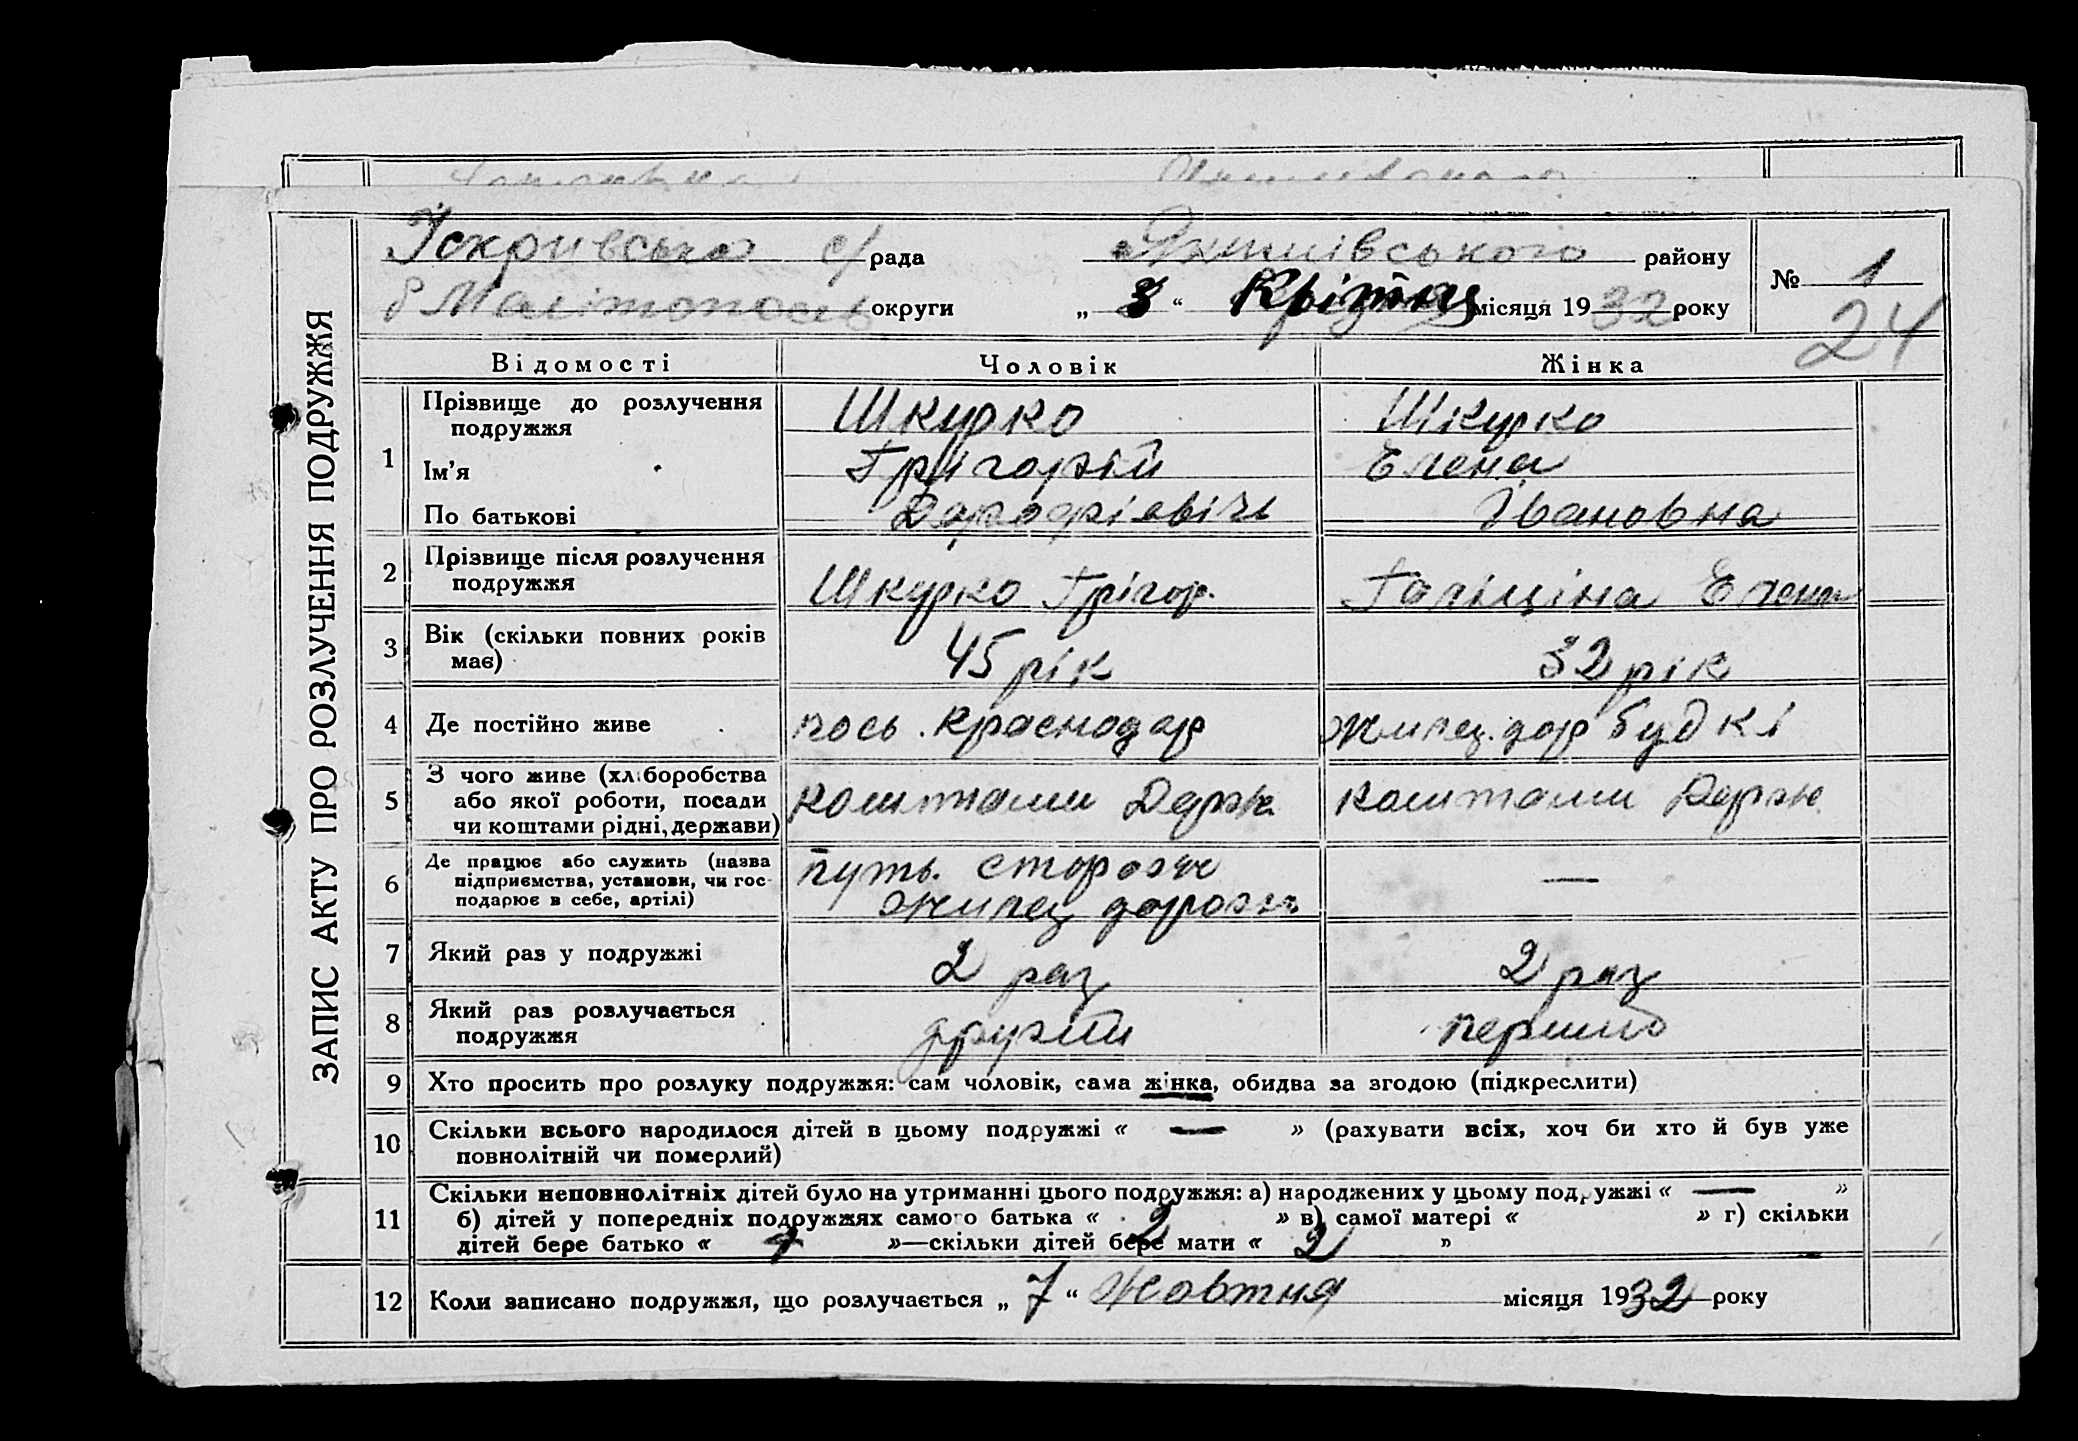 ЗАПИС АКТУ ПРО РОЗЛУЧЕННЯ ПОДРУЖЖЯ
Іскривська с/рада Якимівського району № 1
б Мелітополь округи „ 3 “ місяця 1932 року 24
Відомості Чоловік Жінка
1 Прізвище до розлучення подружжя Шкурко Шкурко
Ім'я Григорій Елена
По батькові Дорофієвічь Івановна
2 Прізвище після розлучення подружжя Шкурко Грігор. Гальціна Елена
3 Вік (скільки повних років має) 45 рік 32 рік
4 Де постійно живе пось. Краснодар Жилец. дор будкі
5 З чого живе (хліборобства або якої роботи, посади чи коштами рідні, держави) коштами Держ коштами Держ
6 Де працює або служить (назва підприємства, установи, чи господарює в себе, артілі) путь. сторож Жилец дорож —
7 Який раз у подружжі 2 раз 2 раз
8 Який раз розлучається подружжя другий
9 Хто просить про розлуку подружжя: сам чоловік, сама жінка, обидва за згодою (підкреслити)
10 Скільки всього народилося дітей в цьому подружжі « — » (рахувати всіх, хоч би хто й був уже
повнолітній чи померлий)
11 Скільки неповнолітніх дітей було на утриманні цього подружжя: а) народжених у цьому подружжі « — »
б) дітей у попередніх подружжях самого батька « 2 » в) самої матері « » г) скільки
дітей бере батько « »—скільки дітей бере мати « 2 »
12 Коли записано подружжя, що розлучається „ 7 “ Жовтня місяця 1932 року